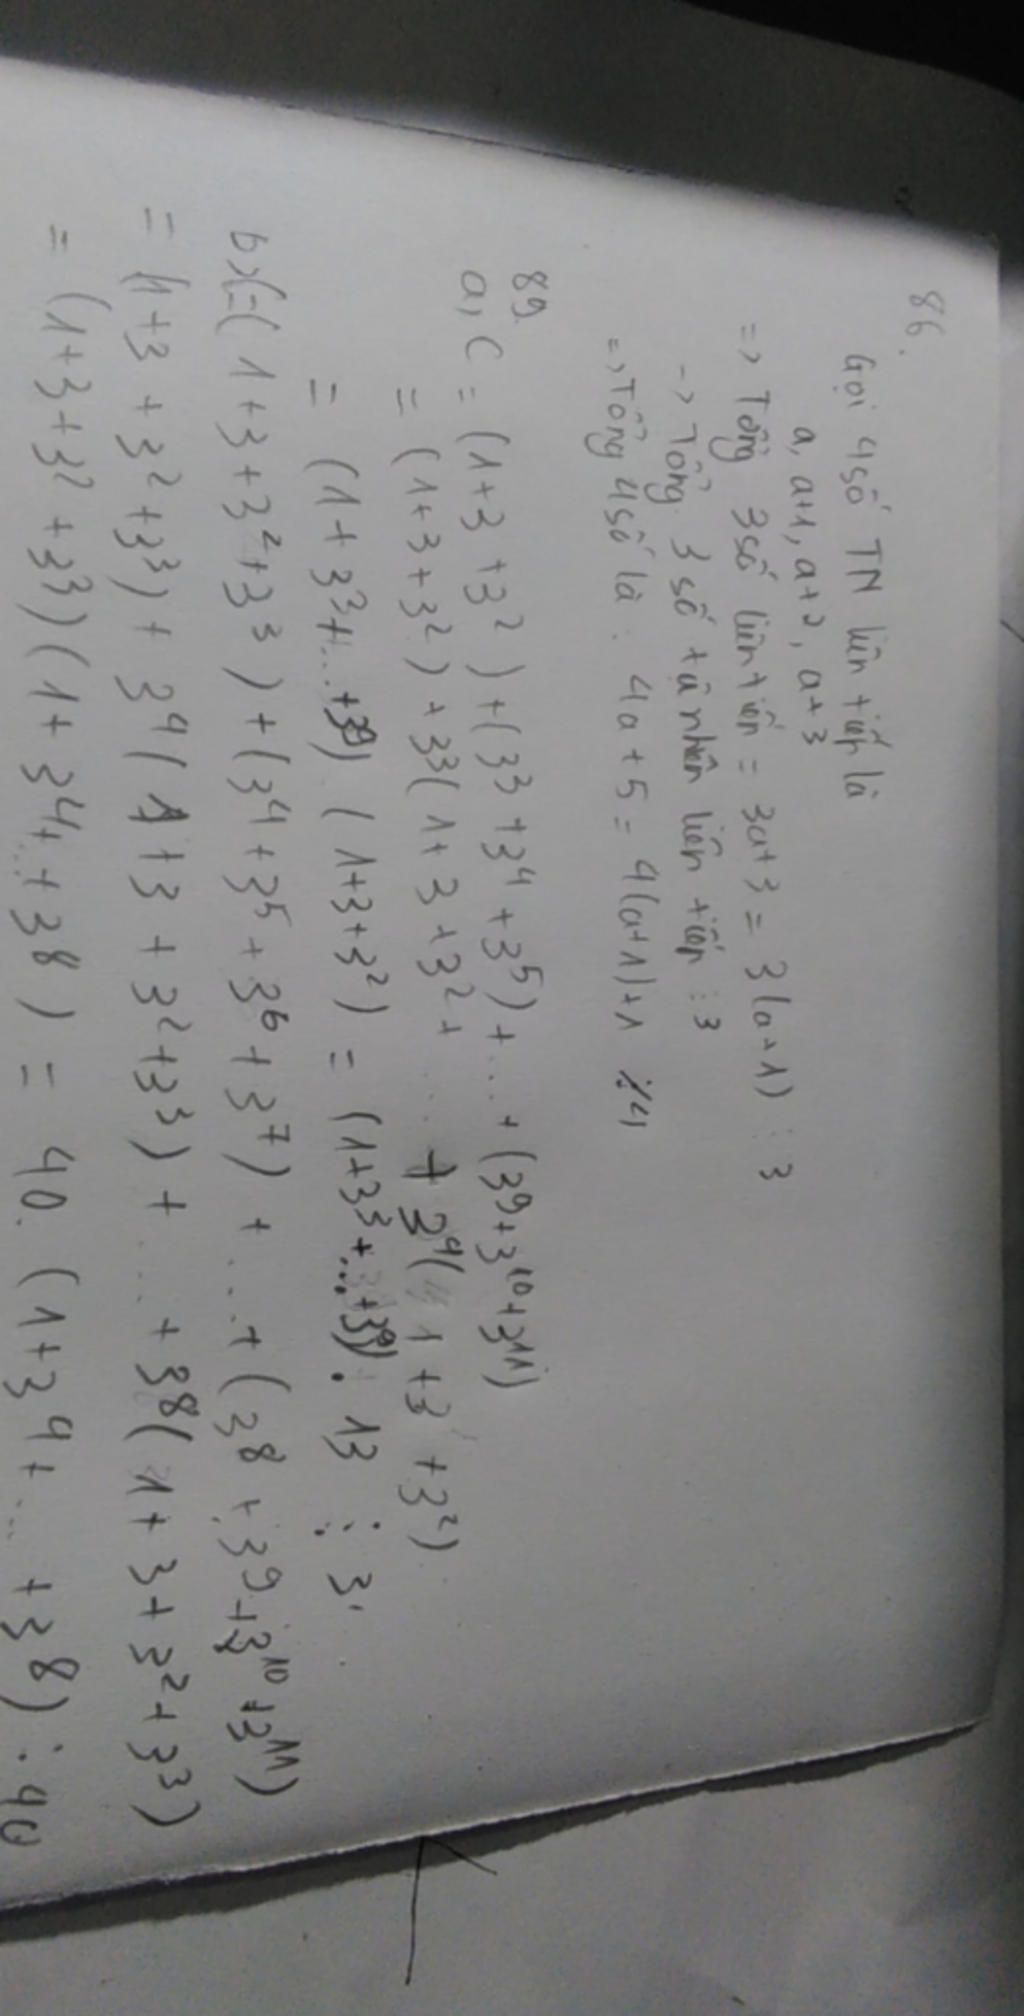 86.
Gọi 4 số TN liên tiếp là
a, a+1, a+2, a+3
=> Tổng 3 số liên tiến = 3a+3 = 3(a+1) : 3
-> Tổng 3 số tự nhiên liên tiếp : 3
=> Tổng 4 số là : 4a + 5 = 4(a+1)+1 ⋮̸ 4
89.
a, C = (1+3 +3²) + (3³ +3⁴ +3⁵) + ... + (3⁹+3¹⁰+3¹¹)
= (1+3+3²) + 3³(1+3+3²+ ... + 3⁹(1 +3 +3²)
= (1+3³+...+3⁹) (1+3+3²) = (1+3³+...+3⁹) . 13 ⋮ 3.
b, C=(1+3+3²+3³)+(3⁴+3⁵+3⁶+3⁷) + ... + (3⁸ +3⁹+3¹⁰+3¹¹)
= (1+3+3²+3³)+ 3⁴(1+3 +3²+3³) + ... +3⁸(1+3+3²+3³)
= (1+3+3²+3³)(1+3⁴+..+3⁸) = 40. (1+3⁴+... +3⁸) ⋮ 40